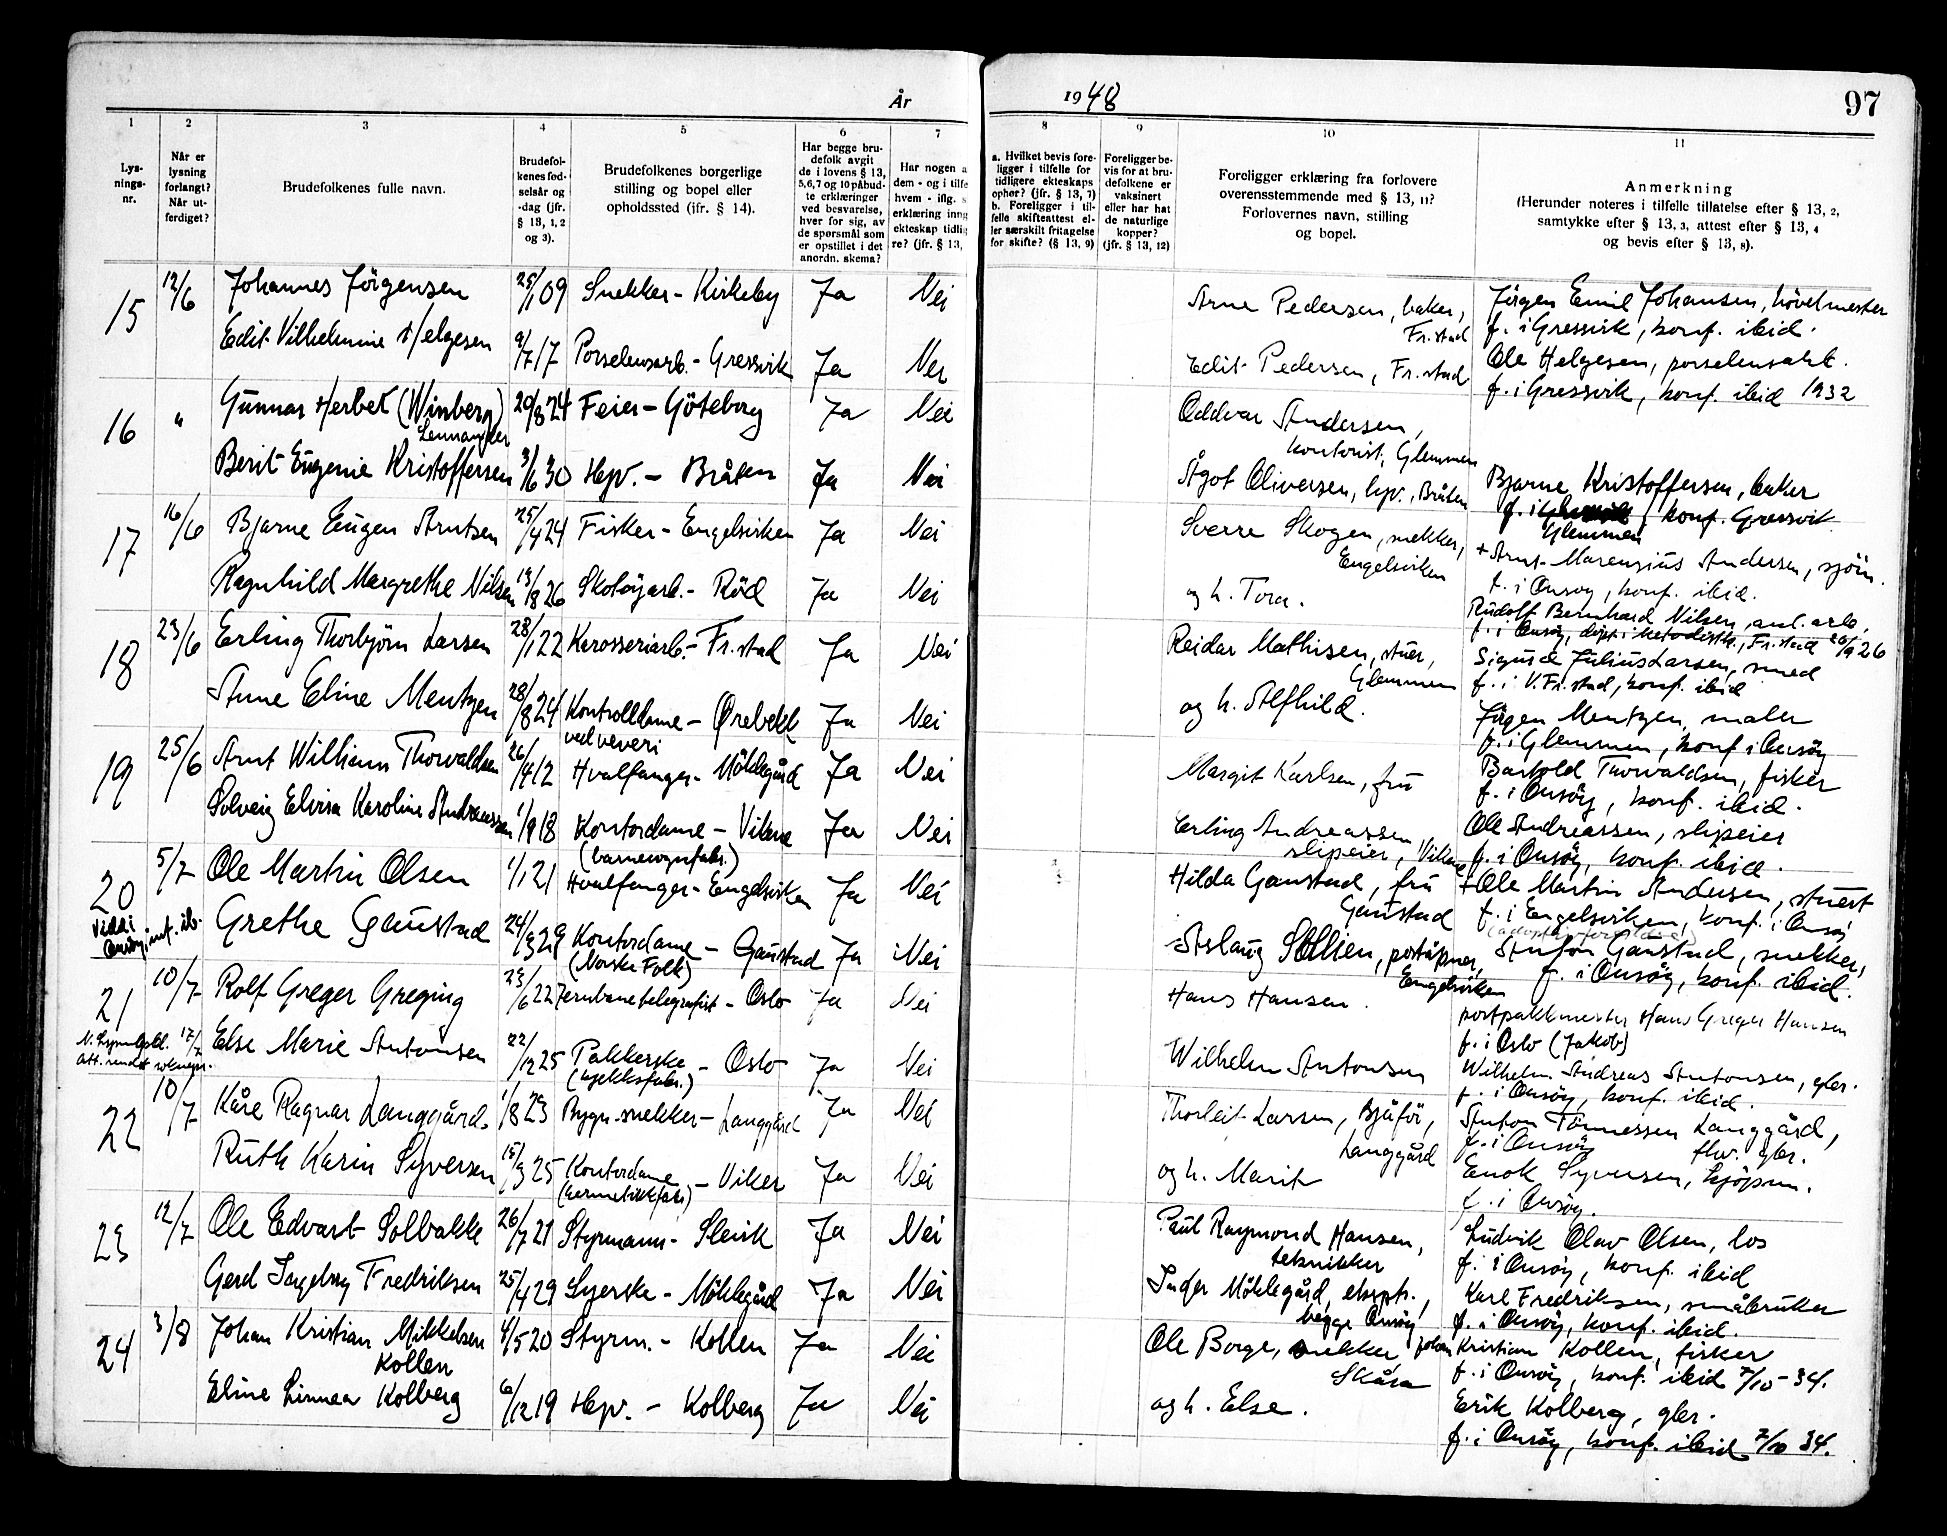 År 1948 97
1 2 3 4 5 6 7 8 9 10 11
Lys-
nings-
nr.
Når er
lysning
forlangt?
Når ut-
ferdiget?
Brudefolkenes fulle navn.
Brudefol-
kenes fød-
selsår og
-dag (jfr.
§ 13, 1, 2
og 3).
Brudefolkenes borgerlige
stilling og bopel eller
opholdssted (jfr. § 14).
Har begge bru-
defolk avgit
de i lovens § 13,
5,6,7 og 10 påbud-
te erklæringer
ved besvarelse,
hver for sig, av
de spørsmål som
er opstillet i det
anordn. skema?
Har nogen a
dem - og i tilfe
hvem - iflg. s
erklæring inng
ekteskap tidlig
re? (jfr. § 13,
a. Hvilket bevis fore-
ligger i tilfelle for
tidligere ekteskaps
opher? (jfr. § 13, 7)
b. Foreligger i til-
felle skifteattest el-
ler særskilt fritagelse
for skifte? (§ 13, 9)
Foreligger be-
vis for at bru-
defolkene er
vaksinert
eller har hat
de naturlige
kopper?
(jfr. § 13, 12)
Foreligger erklæring fra forlovere
overensstemmende med § 13, 11?
Forlovernes navn, stilling
og bopel.
Anmerkning
(Herunder noteres i tilfelle tillatelse efter § 13, 2,
samtykke efter § 13, 3, attest efter § 13, 4
og bevis efter § 13, 8).
15 12/6 Johannes Jörgensen 25/1 09 Snekker - Kirkeby Ja Nei Arne Pedersen, baker, Fr.stad Jörgen Emil Johansen, hövelmester
f. i Gressvik, konf. ibid.
Edit Vilhelmine Helgesen 9/7 17 Porselensarb. - Gressvik Ja Nei Edit Pedersen, Fr.stad Ole Helgesen, porselensarb.
f. i Gressvik, konf. ibid 1932
16 " Gunnar Herbet (Winberg) Lennander 20/8 24 Feier - Göteborg Ja Nei Oddvar Andersen,
kontorist, Glemmen
Berit Eugenie Kristoffersen 3/6 30 Hpv. - Bråten Ja Nei Ågot Oliversen, hpv., Bråten Bjarne Kristoffersen, baker
f. i Glemmen, konf. Gressvik
17 16/6 Bjarne Eugen Arntsen 25/4 24 Fisker - Engelsviken Ja Nei Sverre Skogen, snekker,
Engelsviken + Arnt Marensius Andersen, sjöm.
f. i Onsöy, konf. ibid.
Ragnhild Margrethe Nilsen 19/8 26 Skotöyarb. - Röd Ja Nei og h. Tora. Rudolf Bernhard Nilsen, anl. arb.
f. i Onsöy, döpt i metodistk., Fr.stad 26/9 26
18 23/6 Erling Thorbjörn Larsen 28/1 22 Karosseriarb. - Fr.stad Ja Nei Reidar Mathisen, stuer,
Glemmen Sigurd Julius Larsen, smed
f. i V. Fr.stad, konf. ibid
Anne Eline Mentzen 28/8 24 Kontrolldame - Ørebekk
ved veveri Ja Nei og h. Alfhild. Jörgen Mentzen, maler
f. i Glemmen, konf i Onsöy
19 25/6 Arnt William Thorvaldsen 26/4 12 Hvalfanger - Möklegård Ja Nei Margit Karlsen, fru Bartold Thorvaldsen, fisker
f. i Onsöy, konf. ibid.
Solveig Elvira Karoline Andreassen 1/9 18 Kontordame - Vikane
(barnevognfabr.) Ja Nei Erling Andreassen
slipeier, Vikane Ole Andreassen, slipeier
f. i Onsöy, konf. ibid.
20 5/7 Ole Martin Olsen 1/1 21 Hvalfanger - Engelsviken Ja Nei Hilda Gaustad, fru
Gaustad + Ole Martin Andersen, stuert
f. i Engelsviken, konf. i Onsöy
Viddi
Onsöy, inf. ib.
Grethe Gaustad 24/3 29 Kontordame - Gaustad
(Norske Folk) Ja Nei Aslaug Sollien, poståpner,
Engelsviken (adoptivforeldre)
Anton Gaustad, snekker,
f. i Onsöy, konf. ibid.
21 10/7 Rolf Greger Greging 23/6 22 Jernbanetelegrafist - Oslo Ja Nei Hans Hansen. postpakkmester Hans Greger Hansen
f. i Oslo (Jakob)
17/7 Else Marie Antonsen 22/12 25 Pakkerske - Oslo
(kjeksfabr.) Ja Nei Wilhelm Antonsen Wilhelm Andreas Antonsen, gbr.
f. i Onsöy, konf. ibid.
22 10/7 Kåre Ragnar Langgård. 1/8 23 Bygn. snekker - Langgård Ja Nei Thorleif Larsen, sjåför,
Langgård Anton Tönnessen Langgård,
f. i Onsöy fhv. gbr.
Ruth Karin Syversen 15/3 25 Kontordame - Viker
(hermetikkfabr.) Ja Nei og h. Marit Enok Syversen, kjöpm.
f. i Onsöy.
23 12/7 Ole Edvart Solbakke 26/7 21 Styrmann - Slevik Ja Nei Paul Raymond Hansen,
tekniker Ludvik Olav Olsen, los
f. i Onsöy, konf. ibid
Gerd Ingeborg Fredriksen 25/4 29 Syerske - Möklegård Ja Nei Inger Möklegård, eksp.,
begge Onsöy Karl Fredriksen, småbruker
f. i Onsöy, konf. ibid.
24 3/8 Johan Kristian Mikkelsen
Kollen 4/5 20 Styrm. - Kollen Ja Nei Ole Borge, snekker
Skåra Johan Kristian Kollen, fisker
f. i Onsöy, konf. ibid 7/10 - 34.
Eline Linnea Kolberg 6/12 19 Hpv. - Kolberg Ja Nei og h. Else. Erik Kolberg, gbr.
f. i Onsöy, konf. ibid 7/10 34.